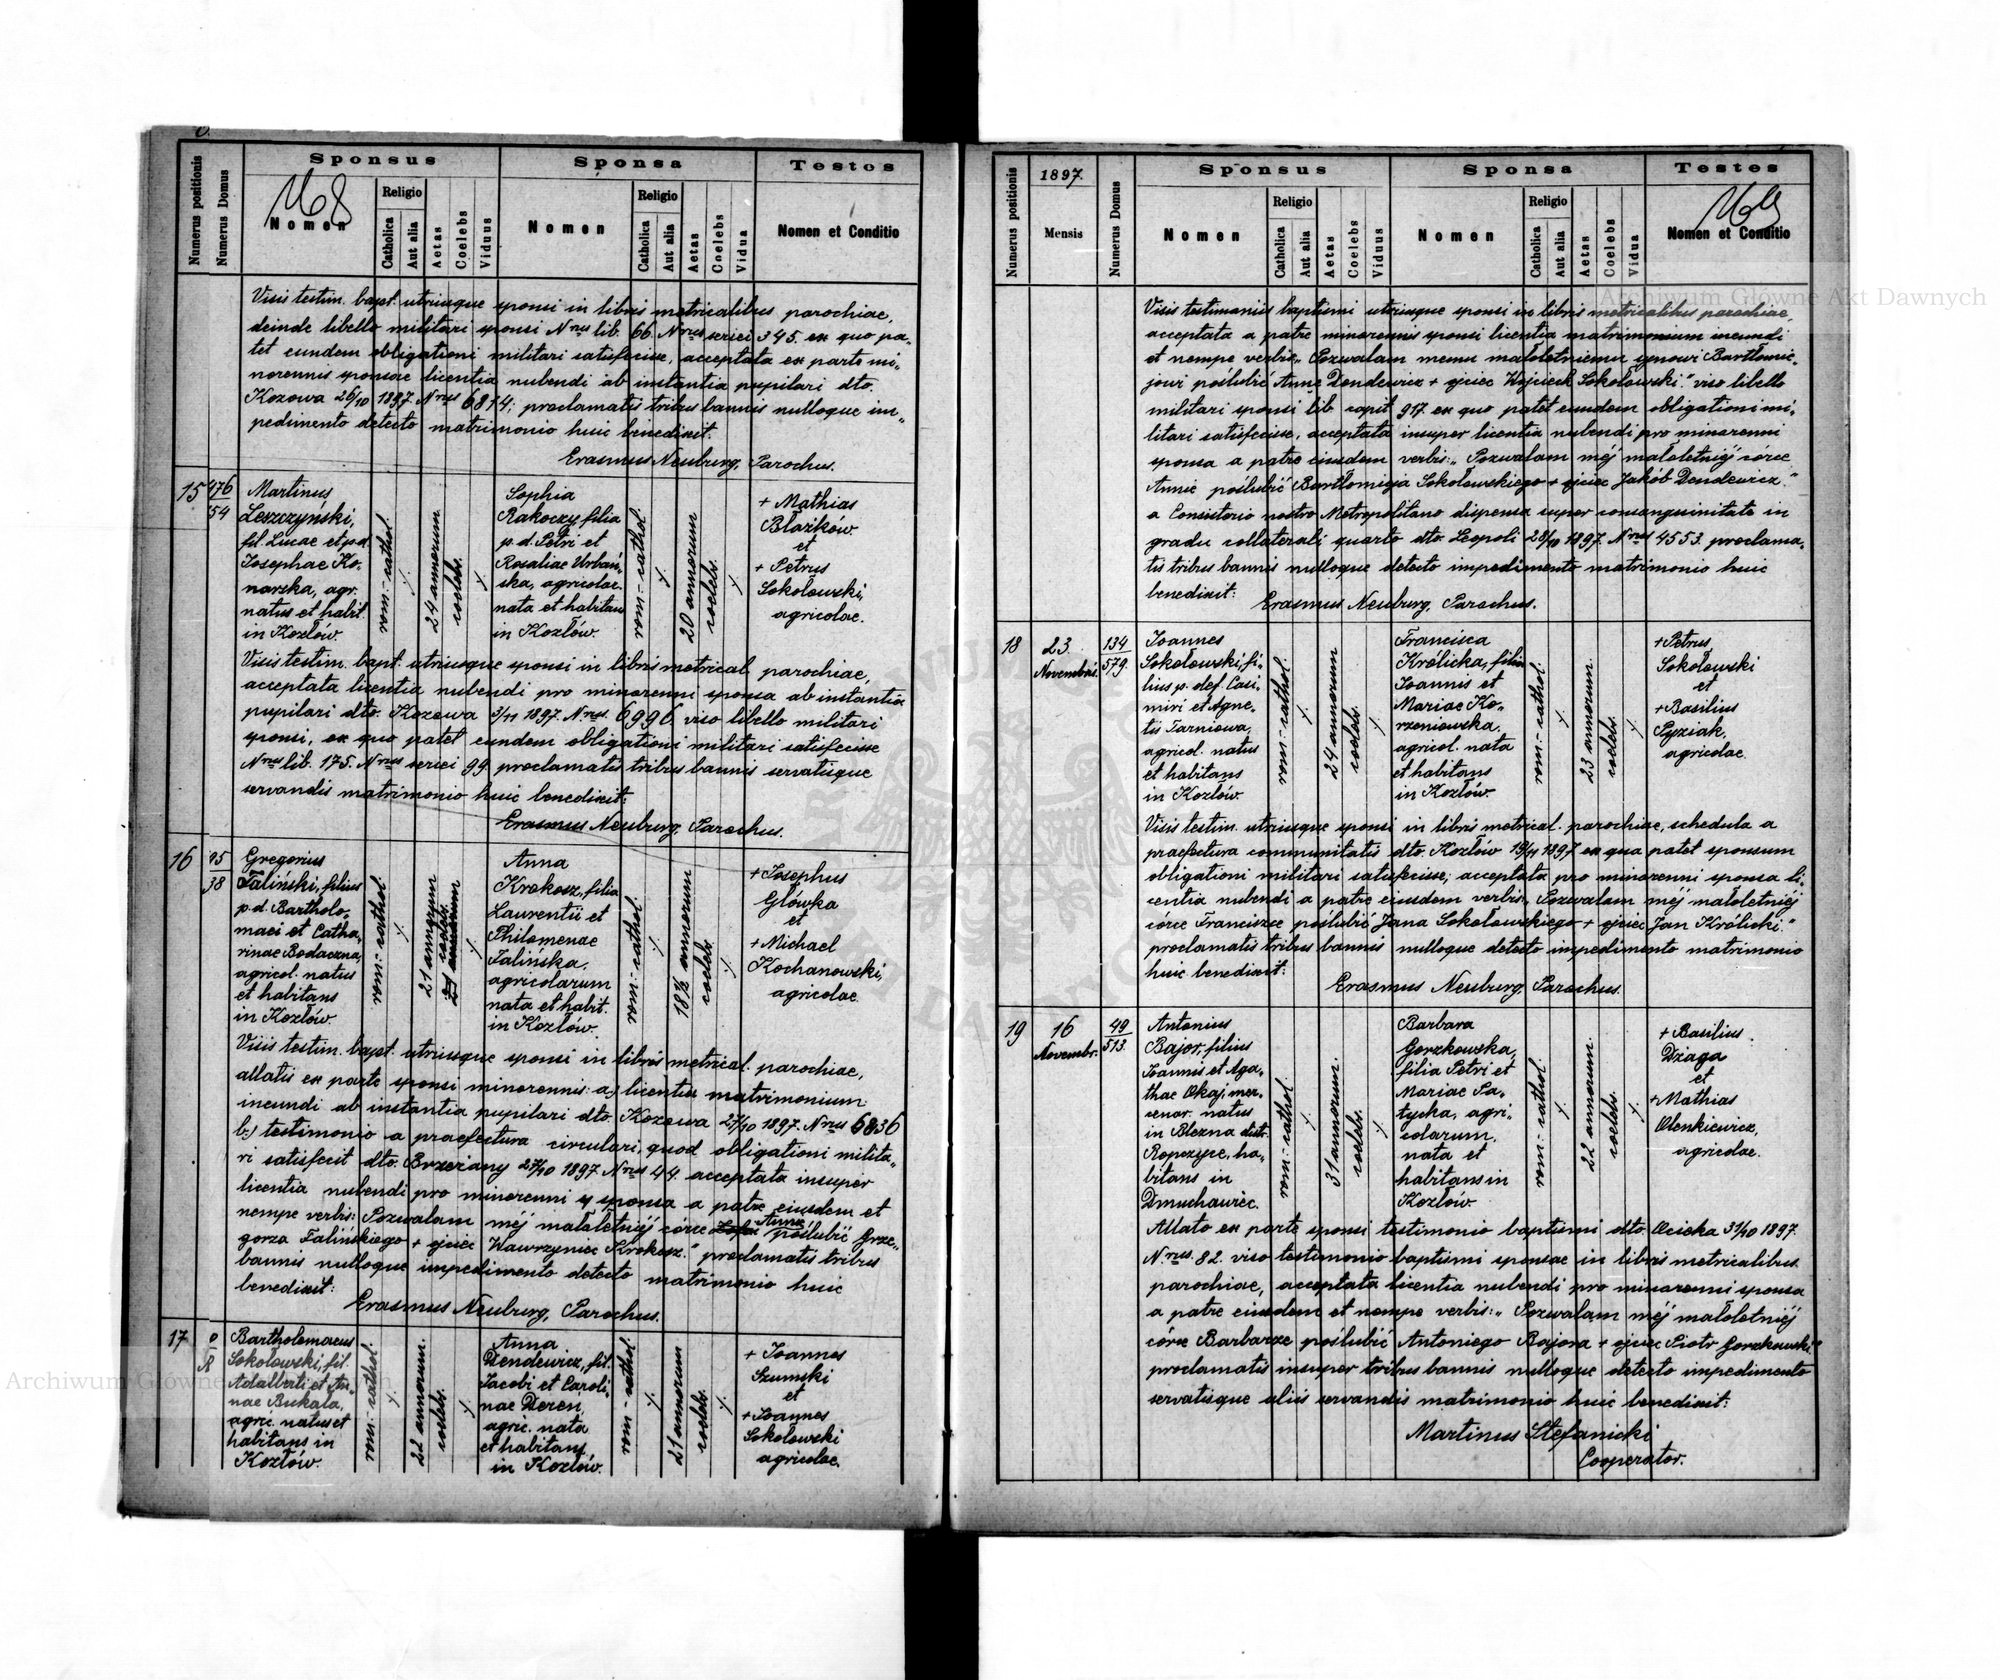 Numerus positionis
Numerus Domus
Sponsus
Sponsa
Testes
Nomen
Religio
Catholica
Aut alia
Aetas
Coelebs
Viduus
Nomen
Religio
Catholica
Aut alia
Aetas
Coelebs
Vidua
Nomen et Conditio
Visis testim. bapt. utriusque sponsi in libris matricalibus parochiae,
deinde libello militari sponsi Nrus lib. 66. Nrus seriei 345. ex quo pa-
tet eundem obligationi militari satisfecisse, acceptata ex parte mi-
norennis sponsae licentia nubendi ab instantia pupilari dto.
Kozowa 26/10 1897. Nrus 6814; proclamatis tribus bannis nulloque im-
pedimento detecto matrimonio huic benedixit.
Erasmus Neuburg, Parochus.
15
476
54
Martinus
Leszczyński,
fil. Lucae et p.d.
Josephae Ko-
narska, agr.
natus et habit.
in Kozłów.
rom.-cathol.
24 annorum
coelebs.
Sophia
Rakoczy filia
p.d. Petri et
Rosaliae Urbań-
ska, agricolae.
nata et habitans
in Kozłów.
rom.-cathol.
20 annorum
coelebs.
+ Mathias
Błażków
et
+ Petrus
Sokołowski,
agricolae.
Visis testim. bapt. utriusque sponsi in libris metrical. parochiae,
acceptata licentia nubendi pro minorenni sponsa ab instantia
pupilari dto. Kozowa 3/11 1897. Nrus. 6996 viso libello militari
sponsi, ex quo patet eundem obligationi militari satisfecisse
Nrus lib. 175. Nrus seriei 99. proclamatis tribus bannis servatisque
servandis matrimonio huic benedixit:
Erasmus Neuburg, Parochus.
16
15
38
Gregorius
Faliński, filius
p.d. Bartholo-
maei et Catha-
rinae Bodaczna,
agricol. natus
et habitans
in Kozłów.
rom.-cathol.
21 annorum
coelebs.
Anna
Krokosz, filia
Laurentii et
Philomenae
Falińska,
agricolarum
nata et habit.
in Kozłów.
rom.-cathol.
18½ annorum
coelebs
+ Josephus
Główka
et
+ Michael
Kochanowski,
agricolae.
Visis testim. bapt. utriusque sponsi in libris metrical. parochiae,
allatis ex parte sponsi minorennis: a.) licentia matrimonium
ineundi ab instantia pupilari dto. Kozowa 27/10 1897. Nrus 6836
b.) testimonio a praefectura circulari, quod obligationi milita-
ri satisfecit dto. Brzeżany 27/10 1897. Nrus 44. acceptata insuper
licentia nubendi pro minorenni sponsa a patre eiusdem et
nempe verbis: Pozwalam méj małoletniéj córce Annie poślubić Grze-
gorza Falińskiego + ojciec Wawrzyniec Krokosz." proclamatis tribus
bannis nulloque impedimento detecto matrimonio huic
benedixit:
Erasmus Neuburg, Parochus.
17
Bartholomaeus
Sokołowski, fil.
Adalberti et An-
nae Bukała,
agric. natus et
habitans in
Kozłów.
rom.-cathol.
22 annorum.
coelebs.
Anna
Dendewicz, fil.
Jacobi et Caroli-
nae Dereń,
agric. nata
et habitans,
in Kozłów.
rom.-cathol.
21 annorum
coelebs.
+ Joannes
Szumski
et
+ Joannes
Sokołowski
agricolae.
Numerus positionis
1897.
Mensis
Numerus Domus
Sponsus
Sponsa
Testes
Nomen
Religio
Catholica
Aut alia
Aetas
Coelebs
Viduus
Nomen
Religio
Catholica
Aut alia
Aetas
Coelebs
Vidua
Nomen et Conditio
Archiwum Główne Akt Dawnych
Visis testimoniis baptismi utriusque sponsi in libris metricalibus parochiae,
acceptata a patre minorennis sponsi licentia matrimonium ineundi
et nempe verbis „Pozwalam memu małoletniemu synowi Bartłomie-
jowi poślubić Annę Dendewicz + ojciec Wojciech Sokołowski." viso libello
militari sponsi lib. capit. 917. ex quo patet eundem obligationi mi-
litari satisfecisse, acceptata insuper licentia nubendi pro minorenni
sponsa a patre eiusdem verbis: „Pozwalam méj małoletniéj córce
Annie poślubić Bartłomieja Sokołowskiego + ojciec Jakób Dendewicz."
a Consistorio nostro Metropolitano dispensa super consanguinitate in
gradu collaterali quarto dto. Leopoli 28/10 1897. Nrus 4553. proclama-
tis tribus bannis nulloque detecto impedimento matrimonio huic
benedixit:
Erasmus Neuburg, Parochus.
18
23.
Novembris.
134
579.
Joannes
Sokołowski, fi-
lius p. def. Casi-
miri et Agne-
tis Tarniowa,
agricol. natus
et habitans
in Kozłów.
rom.-cathol.
24 annorum
coelebs.
Francisca
Królicka, filia
Joannis et
Mariae Ko-
rzeniowska,
agricol. nata
et habitans
in Kozłów.
rom.-cathol.
23 annorum.
coelebs.
+ Petrus
Sokołowski
et
+ Basilius
Pyziak,
agricolae.
Visis testim. utriusque sponsi in libris metrical. parochiae, schedula a
praefectura communitatis dto. Kozłów 19/11 1897 ex qua patet sponsum
obligationi militari satisfecisse; acceptata pro minorenni sponsa li-
centia nubendi a patre eiusdem verbis: „Pozwalam méj małoletniéj
córce Franciszce poślubić Jana Sokołowskiego + ojciec Jan Królicki."
proclamatis tribus bannis nulloque detecto impedimento matrimonio
huic benedixit:
Erasmus Neuburg, Parochus.
19
16
Novembr.
49
513.
Antonius
Bajor, filius
Joannis et Aga-
thae Okaj, mer-
cenar. natus
in Blezna distr.
Ropczyce, ha-
bitans in
Dmuchawiec.
rom.-cathol.
31 annorum.
coelebs.
Barbara
Gorzkowska,
filia Petri et
Mariae Pa-
tycka, agri-
colarum,
nata et
habitans in
Kozłów.
rom.-cathol.
22 annorum.
coelebs.
+ Basilius
Dżaga
et
+ Mathias
Olenkiewicz,
agricolae.
Allato ex parte sponsi testimonio baptismi dto. Ocieka 31/10 1897.
Nrus. 82. viso testimonio baptismi sponsae in libris metricalibus
parochiae, acceptata licentia nubendi pro minorenni sponsa
a patre eiusdem et nempe verbis: „Pozwalam méj małoletniéj
córce Barbarze poślubić Antoniego Bajora + ojciec Piotr Gorzkowski"
proclamatis insuper tribus bannis nulloque detecto impedimento
servatisque aliis servandis matrimonio huic benedixit:
Martinus Stefanicki
Cooperator.
Archiwum Główne Akt Dawnych